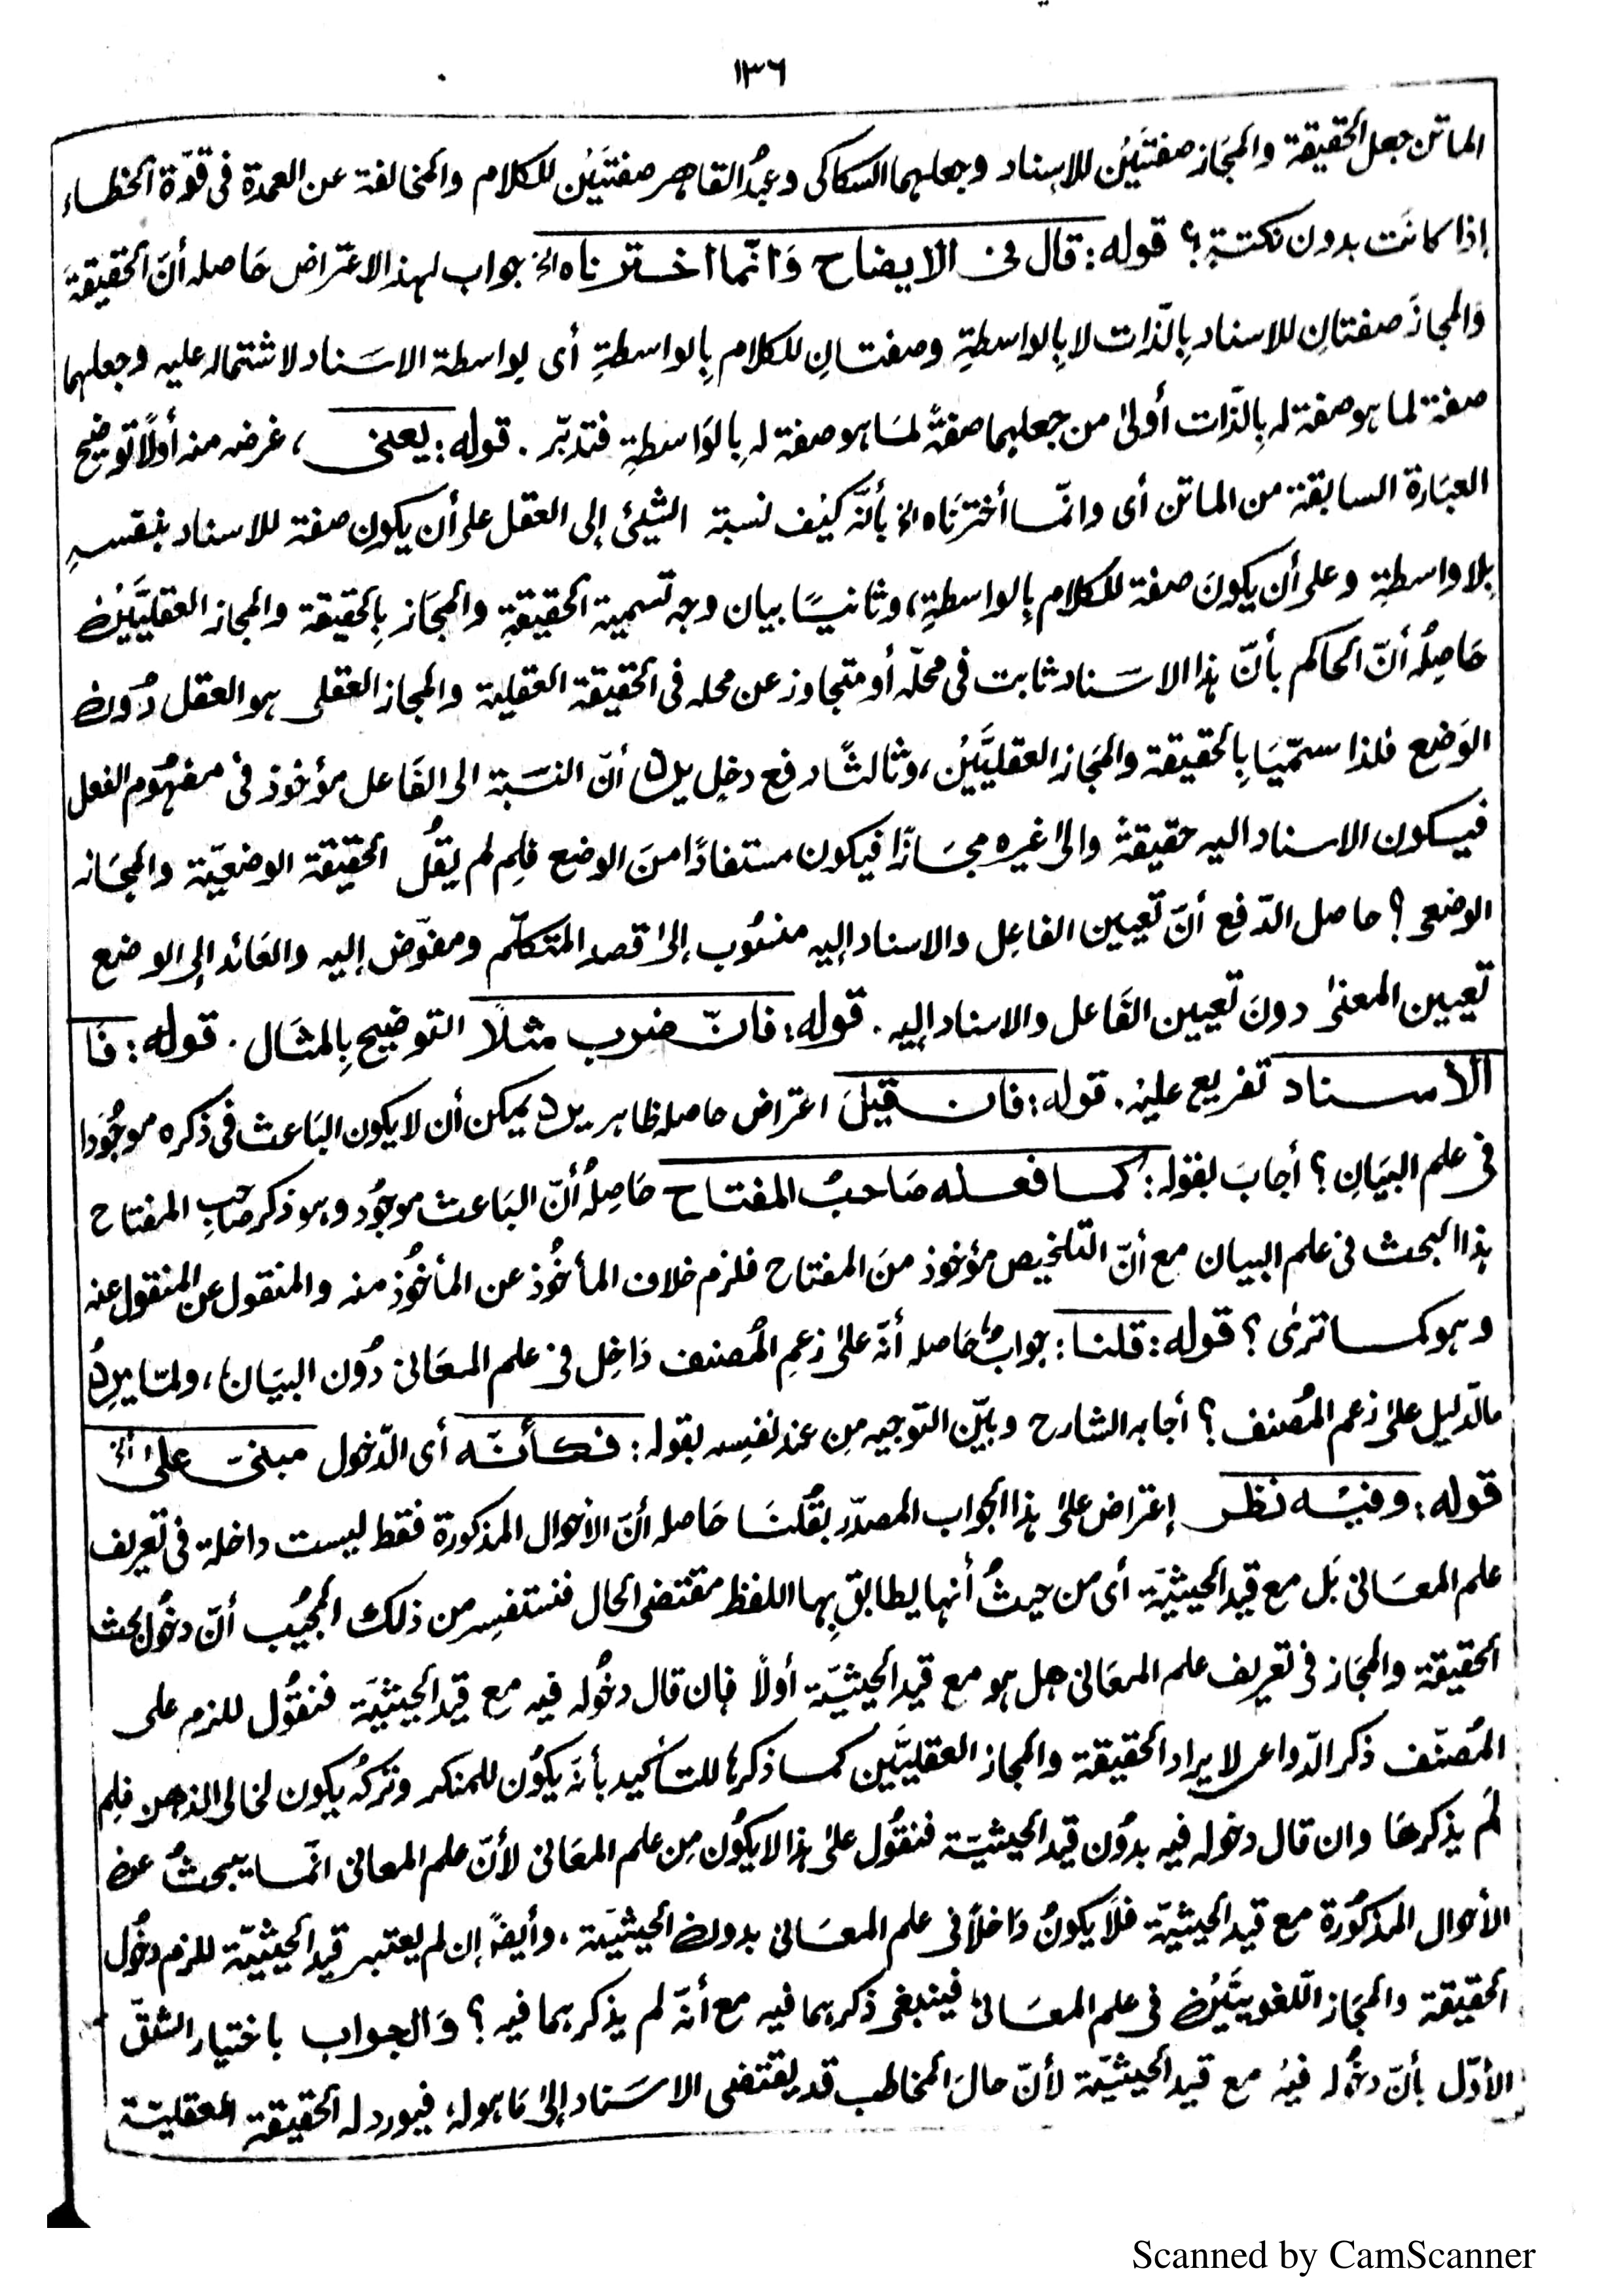 ١٣٦
الماتن جعل الحقيقة والمجاز صفتَيْن للاسناد وجعلهما السكاكى وعبدُ القاهر صفتَيْن للكلام والمخالفة عن العمدة فى قوّة الخطاء
إذا كانَت بدون نكتةٍ؟ قوله: قال فى الايضاح وَانّما اخترناه الخ جواب لهذ الاعتراض حَاصله أنّ الحقيقةَ
وَالمجازَ صفتانِ للاسناد بِالذّات لا بِالواسطةِ وصفتانِ للكلام بِالواسطةِ أى بواسطة الاسَناد لاشتماله عليه وجعلهما
صفة لما هو صفة له بِالذّات أولىٰ من جعلهما صفةً لمَا هو صفة له بِالوَاسطةِ فتدبّر. قوله: يعنى، غرضه منه أولًا توضيح
العبَارة السابقة من الماتن أى وانّما أخترنَاه الخ بأنّه كيْف نسبة الشئ إلى العقل على أن يكون صفة للاسناد بنفسهٖ
بِلا واسطةٍ وعلى أن يكونَ صفة للكلام بِالواسطةِ، وثانيًا بيان وجه تسمية الحقيقةِ والمجَاز بِالحقيقة والمجاز العقليَّيْن
حَاصِلُه أنّ الحاكم بأنّ هذا الاسَناد ثابت فى محلّه أو متجاوز عن محله فى الحقيقة العقلية والمجاز العقلى هو العقل دُون
الوَضع فلذا سمّيَا بِالحقيقة والمجَاز العقليَّيْن، وثالثًا دفع دخلٍ يرد أنّ النسَبة الى الفَاعل مؤخوذ فى مفهُوم الفعل
فيكون الاسناد اليه حقيقةً والىٰ غيره مجَازًا فيكون مستفادًا منَ الوضع فلِم لم يقُل الحقيقة الوضعيّة والمجَاز
الوضعى؟ حاصل الدّفع أنّ تعيين الفاعِل والاسناد إليه منسُوب إلىٰ قصد المتكلّم ومفوّض إليه والعَائد إلى الوضع
تعيين المعنىٰ دونَ تعيين الفَاعل والاسناد إليه. قوله: فانّ ضرب مثلًا التوضيح بِالمثَال. قوله: فَا
الأسناد تفريع عليْه. قوله: فان قيْلَ اعتراض حاصله ظاهر يرد يمكن أن لا يكون البَاعث فى ذكره موجُودا
فى علم البيَانِ؟ أجابَ بقوله: كما فعله صَاحبُ المفتاح حَاصِلُه أنّ البَاعث موجُود وهو ذكر صَاحب المفتاح
هذا البحث فى علم البيان مع أنّ التلخيص مؤخوذ منَ المفتاح فلزم خلاف المأخُوذ عن المأخُوذ منه والمنقول عن المنقول عنه
وهو كما ترىٰ؟ قوله: قلنا: جوابٌ حَاصله أنّه علىٰ زعمِ المُصنف دَاخِل فى علم المعَانى دُون البيَان، ولمّا يرد
ما الدّليل علىٰ زعم المُصنف؟ أجابه الشارح وبَيّن التوجيه مِن عند نفسِه بقوله: فكأنّه أى الدّخول مبنى علىٰ الخ
قوله: وفيْه نظر إعتراض علىٰ هذا الجواب المصدّر بقُلنَا حَاصله أنّ الاحوال المذكورة فقط ليست داخلة فى تعريف
علم المعَانى بَل مع قيد الحيثيّة أى من حيثُ أنها يطابق بِها اللفظ مقتضى الحال فنستفسِر من ذلك المجيُب أنّ دخُول بحث
الحقيقة والمجَاز فى تعريف علم المعَانى هل هو مع قيد الحيثيّة أولًا فإن قال دخُوله فيه مع قيد الحيثيّة فنقُول للزم على
المُصنّف ذكر الدّواعى لايراد الحقيقة والمجاز العقليَّيْن كما ذكرهَا للتأكيد بأنّه يكُون للمنكر وتركُه يكون لخالى الذهن فلِم
لَم يذكرهَا وان قال دخوله فيه بدوُن قيد الحيثيّة فنقُول علىٰ هذا لا يكُون مِن علم المعَانى لأنّ علم المعانى انّما يبحثُ عن
الأحوال المذكُورة مع قيد الحيثيّة فلَا يكونُ دَاخلًا فى علم المعَانى بدون الحيثيَة، وأيضًا إن لم يعتبر قيد الحيثيّة للزم دخُول
الحقيقة والمجَاز اللّغويَّيْن فى علم المعَانى فينبغى ذكرهما فيه مع أنّه لم يذكرهما فيه؟ وَالجواب باختيار الشقّ
الأوّل بأنّ دخُوله فيْه مع قيد الحيثيّة لأنّ حالَ المخاطب قد يقتضى الاسَناد إلىٰ مَا هو له فيورد له الحقيقة العقليّة
Scanned by CamScanner